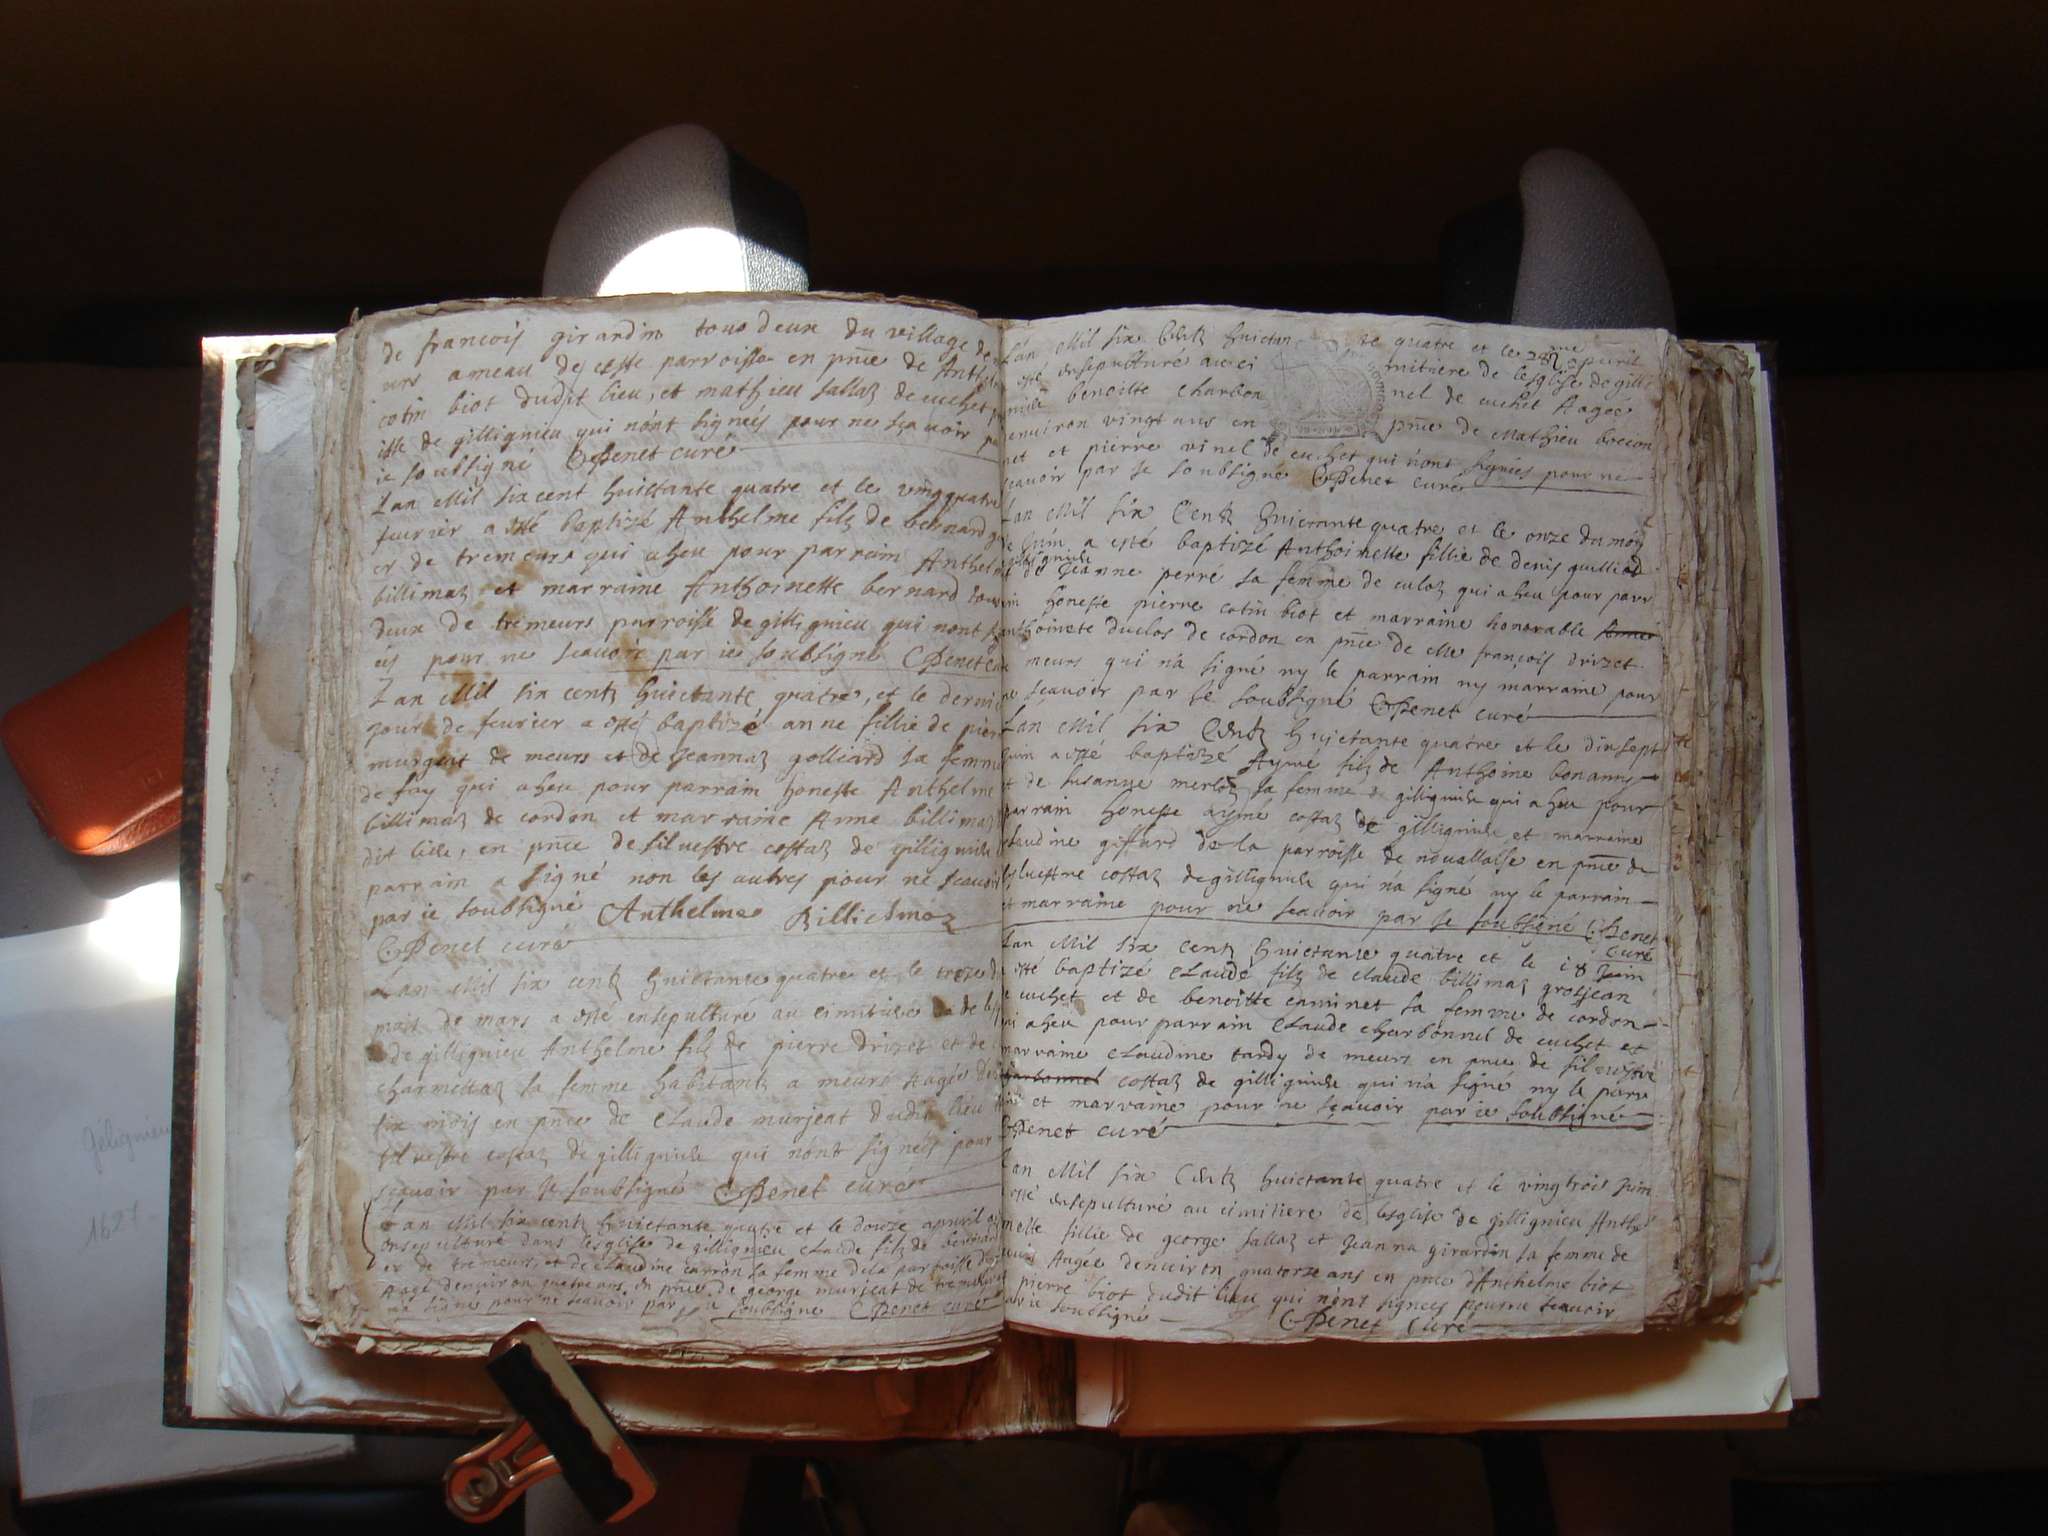 de francois girardin tous deux du village de
urs ameau de ceste parroisse en pnce de Anth
cotin biot dudit lieu, et mathieu sallaz de cuchet
isse de gillignieu qui nont signés pour ne scavoir p
ie soubsigné CPenet curé
Lan Mil six cent huictante quatre et le vingquatre
feurier a esté baptizé Anthelme filz de bernard
er de tremeurs qui a heu pour parrain Anthelm
billimaz et marraine Anthoinette bernard tous
deux de tremeurs parroisse de gillignieu qui nont
és pour ne scavoir par ie soubsigné CPenet c
Lan Mil six centz huictante quatre, et le dernie
jour de feurier a esté baptizé anne fillie de pier
murgeat de meurs et de Jeannaz golliard sa femme
de fay qui a heu pour parrain honeste Anthelme
billimaz de cordon et marraine Anne billimaz
dit lieu, en pnce de siluestre costaz de gillignieu
parrain a signé non les autres pour ne scauoir
par ie soubsigné Anthelme Billiemaz
CPenet curé
Lan Mil six centz huictante quatre et le treze d
mois de mars a esté ensepulturé au cimitiere de les
de gillignieu Anthelme filz de pierre drizet et de
charmettaz sa femme habitantz a meurs aagé de
six mois en pnce de Claude murjeat dudit lieu
siluestre costaz de gillignieu qui nont signéz pour
scauoir par Je soubsigné CPenet curé
Lan Mil six centz huictante quatre et le douze apuril a
ensepulturé dans lesglise de gillignieu claude filz de bernard
er de tremeurs, et de Claudine carron sa femme dela parroisse
Aagé denuiron quatre ans, en pnce de george murjeat de tremeurs
na signé pour ne scauoir par ie soubsigné CPenet curé
Lan Mil six Centz huictante quatre et le 28me apuril
esté ensepulturé au cimitiere de lesglise de gilli
nieu benoitte charbonnel de cuchet Aagée
enuiron vingt ans en pnce de Mathieu boccon
net et pierre vinel de cuchet qui nont signés pour ne
scauoir par Je soubsigné CPenet curé
Lan Mil six Centz huictante quatre et le onze du moy
de Juin a esté baptizé Anthoinette fillie de denis guilliod
de gillignieu
de Jeanne perré sa femme de culoz qui a heu pour parr
ain honeste pierre cotin biot et marraine honorable
anthoinete duclos de cordon en pnce de Me françois drizet
meurs qui na signé ny le parrain ny marraine pour
ne scauoir par Je soubsigné CPenet curé
Lan Mil six Centz huictante quatre et le dixsept
Juin a esté baptizé Aymé filz de Anthoine bonamy
et de susanne merloz sa femme de gillignieu qui a heu pour
parrain honeste aymé costaz de gillignieu et marraine
claudine giffard de la parroisse de nouallaise en pnce de
syluestre costaz de gillignieu qui na signé ny le parrain
et marraine pour ne scauoir par Je soubsigné CPenet
curé
Lan Mil six centz huictante quatre et le 18 Juin
a esté baptizé Claude filz de claude billimaz grosjean
de cuchet et de benoitte caminet sa femme de cordon
qui a heu pour parrain Claude charbonnel de cuchet et
marraine Claudine tardy de meurs en pnce de siluestre
charbonnel costaz de gillignieu qui na signé ny le parr
ain et marraine pour ne scauoir par ie soubsigné
CPenet curé
Lan Mil six Centz huictante quatre et le vingtrois Juin
a esté ensepulturé au cimitiere de lesglise de gillignieu Anthel
mette fillie de george sallaz et Jeanna girardin sa femme de
Aagée denuiron quatorze ans en pnce d'Anthelme biot
pierre biot dudit lieu qui nont signees pour ne scauoir
par ie soubsigné CPenet Curé
Gélignieu
1627